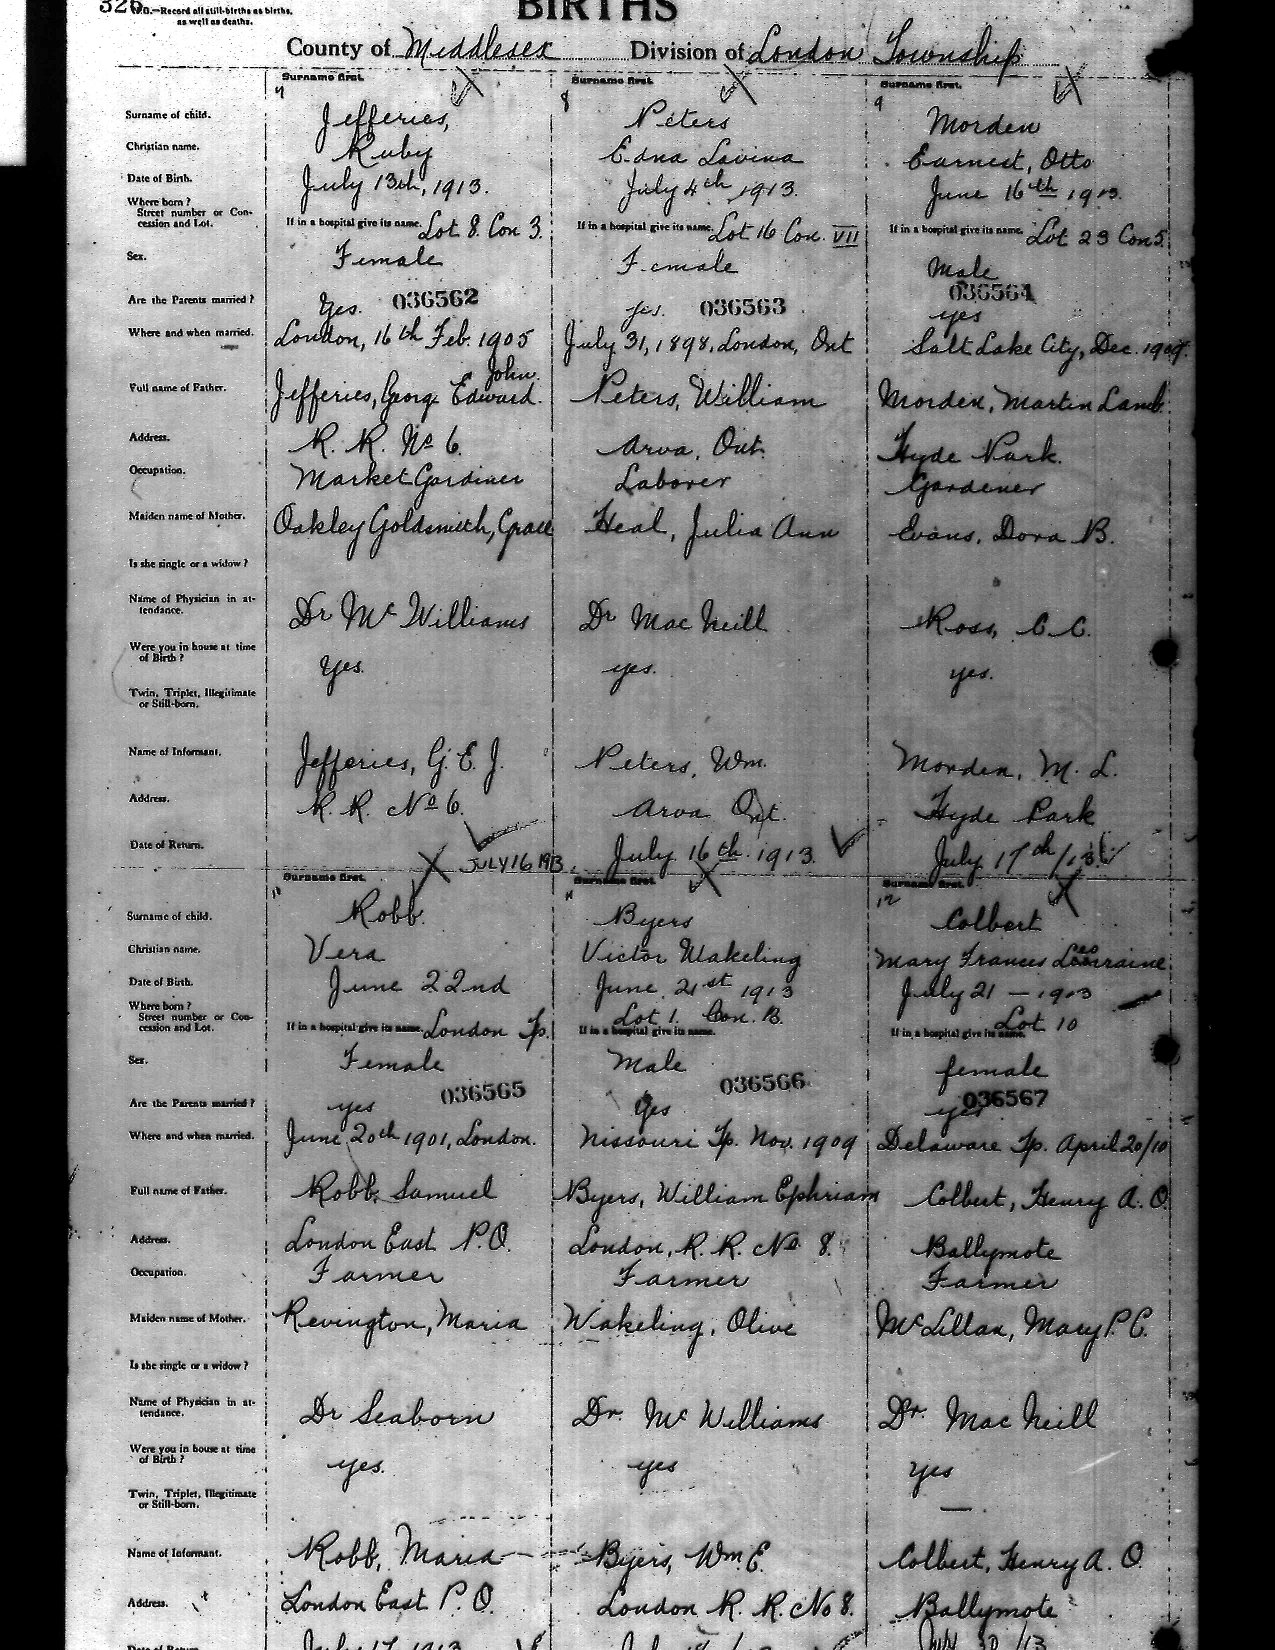 326
N.B.—Record all still-births as births,
as well as deaths.
BIRTHS
County of Middlesex Division of London Township
Surname first. Surname first. Surname first.
7 8 9
Surname of child. Jefferies, Peters Morden
Christian name. Ruby Edna Lavina Earnest, Otto
Date of Birth. July 13th, 1913. July 4th, 1913. June 16th 1913.
Where born?
Street number or Con-
cession and Lot. If in a hospital give its name. Lot 8. Con 3. If in a hospital give its name. Lot 16 Con. VII If in a hospital give its name. Lot 23 Con 5.
Sex. Female Female Male
036562 036563 036564
Are the Parents married? Yes. yes. yes
Where and when married. London, 16th Feb. 1905 July 31, 1898, London, Ont Salt Lake City, Dec. 1909.
John
Full name of Father. Jefferies, George Edward. Peters, William Morden, Martin Lamb.
Address. R. R. No 6. Arva, Ont. Hyde Park.
Occupation. Market Gardiner Laborer Gardener
Maiden name of Mother. Oakley Goldsmith, Grace Heal, Julia Ann Evans, Dora B.
Is she single or a widow?
Name of Physician in at-
tendance. Dr McWilliams Dr MacNeill Ross, C. C.
Were you in house at time
of Birth? Yes. yes. yes.
Twin, Triplet, Illegitimate
or Still-born.
Name of Informant. Jefferies, G. E. J. Peters, Wm. Morden, M. L.
Address. R. R. No 6. Arva Ont. Hyde Park
Date of Return. JULY 16 1913 July 16th 1913. July 17th/13
Surname first. Surname first. Surname first.
10 11 12
Surname of child. Robb. Byers Colbert
Christian name. Vera Victor Wakeling Mary Frances Lorraine
Date of Birth. June 22nd June 21st 1913 July 21 — 1913
Where born?
Street number or Con-
cession and Lot. If in a hospital give its name. London Tp. Lot 1. Con. B. If in a hospital give its name. If in a hospital give its name. Lot 10
Sex. Female Male female
036565 036566 036567
Are the Parents married? yes Yes yes
Where and when married. June 20th 1901, London. Nissouri Tp. Nov. 1909 Delaware Tp. April 20/10
Full name of Father. Robb, Samuel Byers, William Ephriam Colbert, Henry A. O.
Address. London East P.O. London, R. R. No 8. Ballymote
Occupation. Farmer Farmer Farmer
Maiden name of Mother. Revington, Maria Wakeling, Olive McLillan, Mary P. C.
Is she single or a widow?
Name of Physician in at-
tendance. Dr Seaborn Dr. McWilliams Dr. MacNeill
Were you in house at time
of Birth? yes. yes yes
Twin, Triplet, Illegitimate
or Still-born. —
Name of Informant. Robb, Maria Byers, Wm. E. Colbert, Henry A. O.
Address. London East P. O. London R. R. No 8. Ballymote
Date of Return. July 17 1913 July